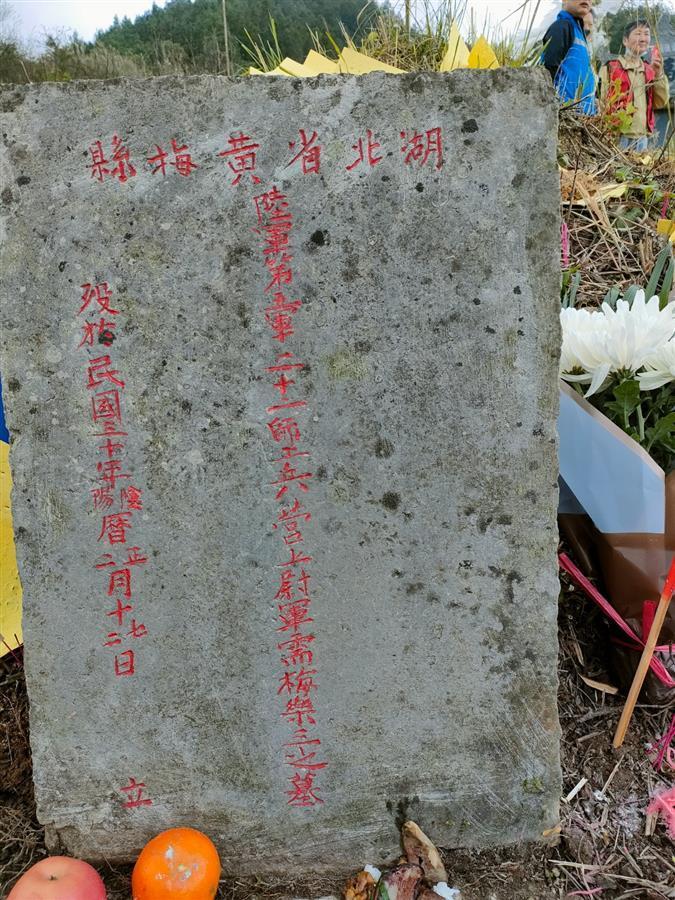 湖北省黄梅縣
陸軍第五軍二十一師工兵營上尉軍需梅樂三之墓
殁於民國三十年陰陽曆正二月十七二日 立